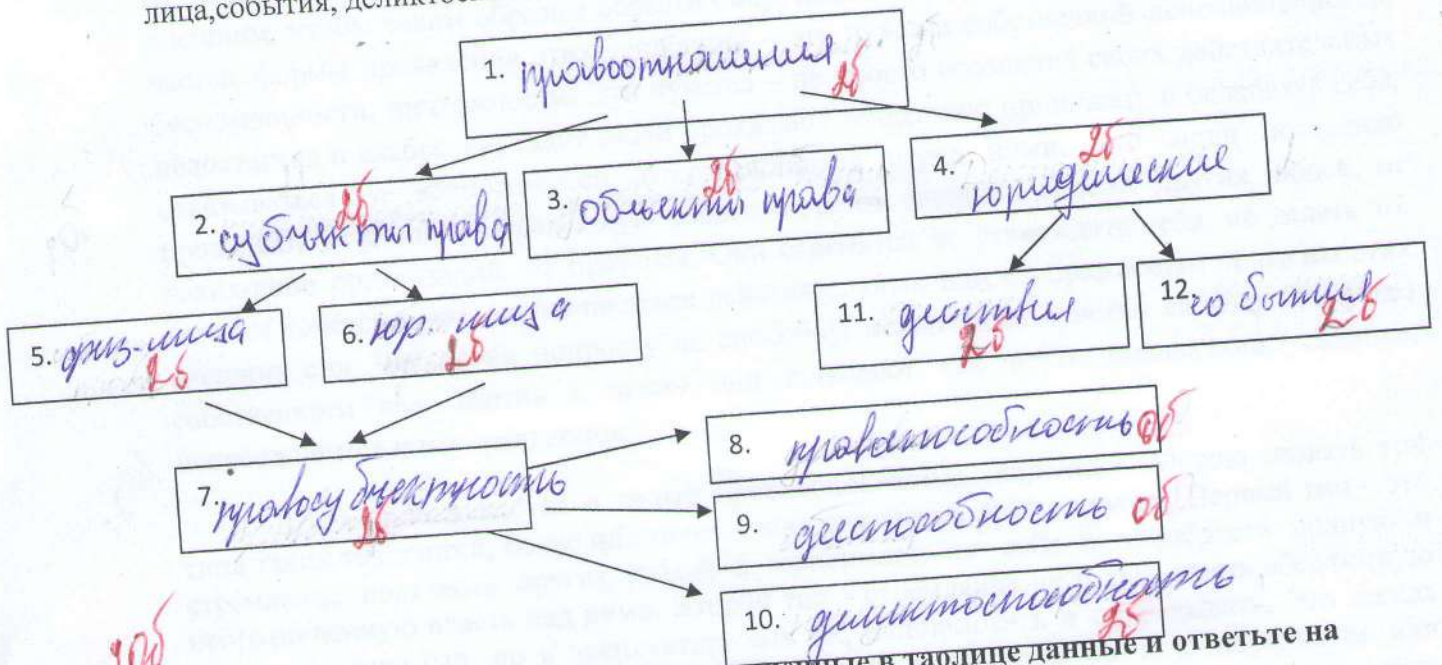 лица,события,
1. правоотношения 2б
2. субъекты права 2б
3. объекты права 2б
4. юридические 2б
5. физ-лица 2б
6. юр. лица 2б
11. действия 2б
12. события 2б
7. правосубъектность 2б
8. правоспособность 0б
9. дееспособность 0б
10. деликтоспособность 2б
20б
в таблице данные и ответьте на